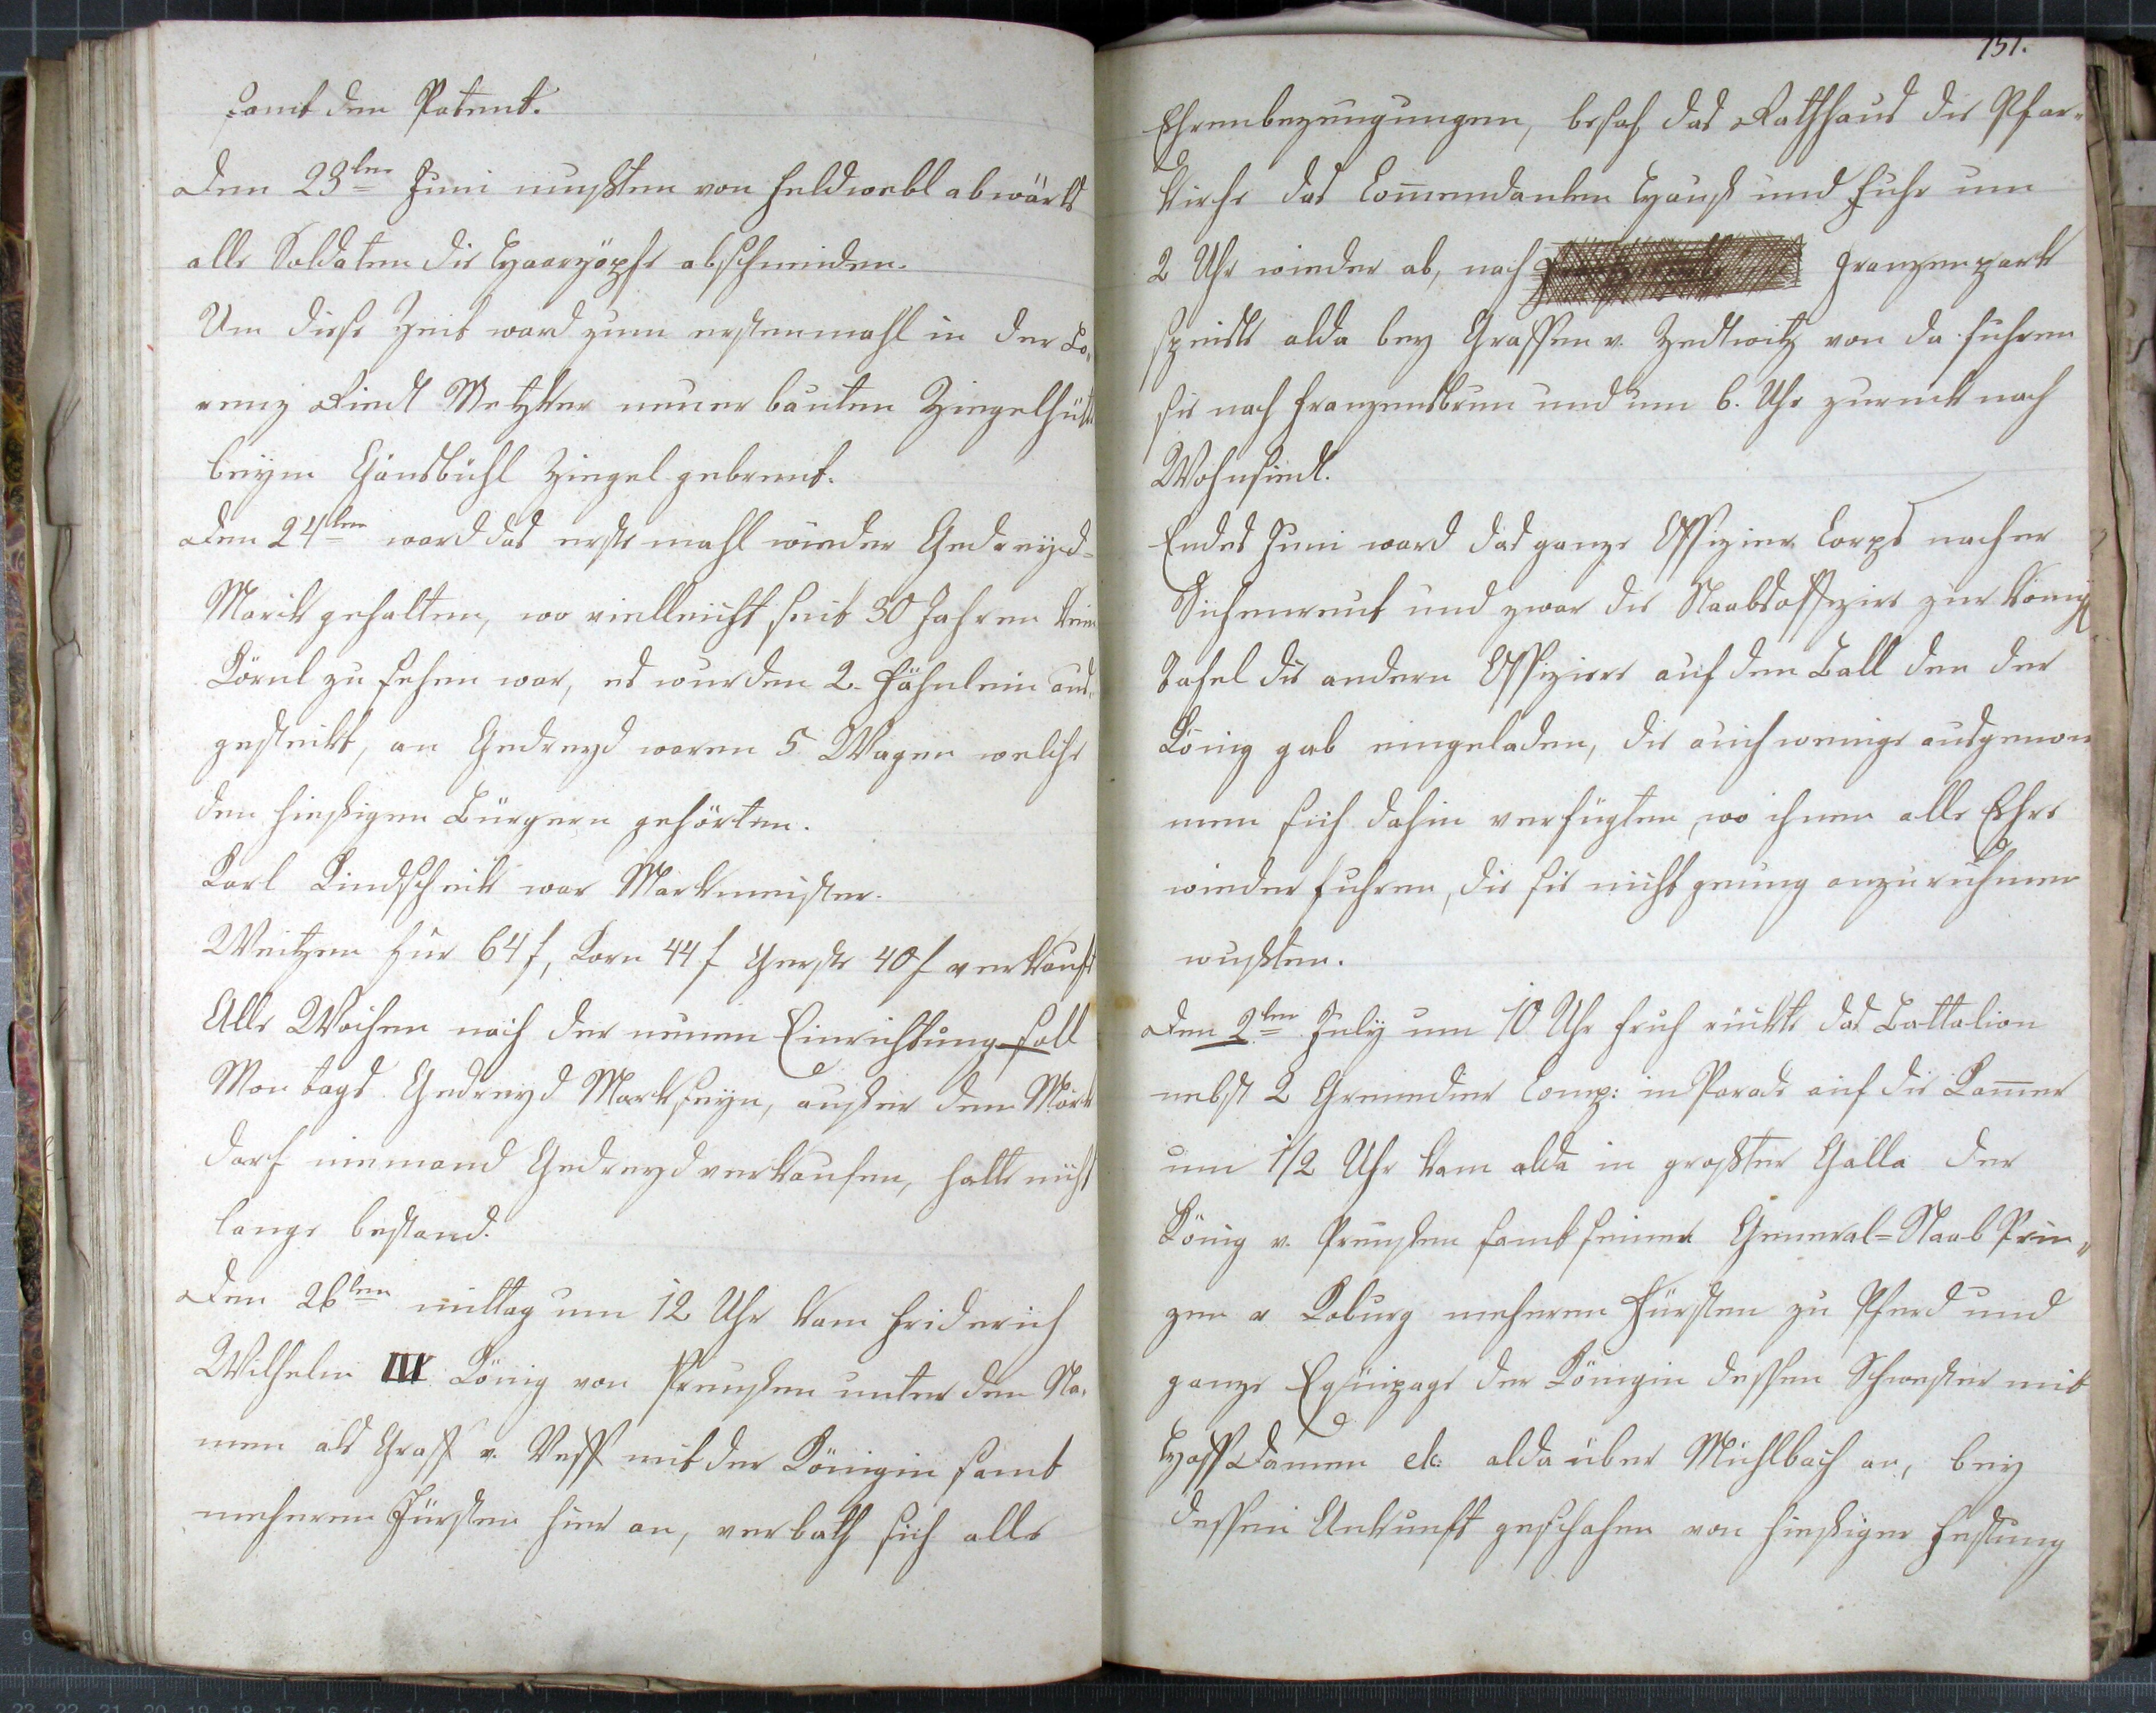 samt den Patent.
Den 23ten Juni mußten von Feldwebl abwärts
alle Soldaten die Haarzöpfe abschneiden.
Um diese Zeit ward zum erstenmahl in der Lo„
renz Riedl Metzker neuerbauten Ziegelhütt
beym Gänsbühl Ziegel gebrent.
Den 24ten ward das erste mahl wieder Gedreyd=
Markt gehalten, wo vielleicht seit 30 Jahren kein
Körnl zu sehen war, es wurden 2. Fähnlein aus„
gesteckt, an Gedreyd waren 5 Wagen welche
den hießigen Bürgern gehörten.
Karl war Marktmeister.
Weitzen für 64 f, Korn 44 f Gerste 40 f verkauft
Alle Wochen nach der neuen Einrichtung soll
Montags Gedreyd Markt seyn, außer dem Markt
darf niemand Gedreyd verkaufen, hatte nicht
lange bestand.
Den 26ten mittag um 12 Uhr kam Friderich
Wilhelm III König von Preußen unter den Na„
men als Graff v. mit der Königin samt
mehreren Fürsten hier an, verbath sich alle
151.
Ehrenbezeugungen, besah das Rathhaus die Pfar„
kirche das Com̄endanten Hauß und fuhr um
2 Uhr wieder ab, nach Franzenpark
speiste alda bey Graffen v. Zedtwitz von da fuhren
sie nach Franzensbrun und um 6. Uhr zurück nach
Wohnsiedl.
Endes Juni ward das ganze Offizier Corps nacher
Sichersreut und zwar die Staabsoffizire zur königl
Tafel die andern Offiziere auf den Ball den der
König gab eingeladen, die auch wenige ausgenom
men sich dahin verfügten, wo ihnen alle Ehre
wiederfuhren, die sie nicht genug anzurühmen
wußten.
Den 2ten July um 10 Uhr fruh rückte das Battalion
nebst 2 Grenedier Comp: in Parade auf die Kam̄er
um 1/2 Uhr kam alda in großter Galla der
König v. Preußen samt seinen General=Staab Prin„
zen v Koburg mehreren Fürsten zu Pferd und
ganze Equipage der Königin dessen Schwester mit
Hoff Damen etc: alda über Mühlbach an, bey
dessen Ankunft geschahen von hießiger Festung